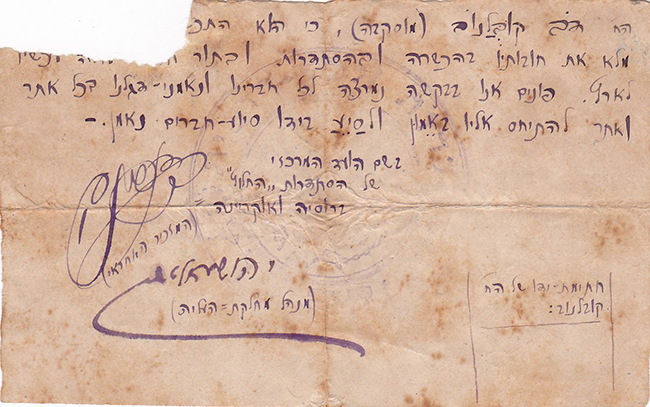 הח' דב קובלנוב (מוסקבה), כי הוא
מלא את חובותיו בהכשרה ובהסתדרות. ובתור
לארץ. פונים אנו בבקשה נמרצה לכל חברינו ונאמני-דגלנו בכל אתר
ואתר להתיחס אליו באמון ולסיע בידו סיוע-חברים נאמן.-
בשם הועד המרכזי
של הסתדרות "החלוץ"
ברוסיה ואוקריינה
(המזכיר האחראי)
(מנהל מחלקת-העליה)
חתימת-ידו של הח'
קובלנוב: